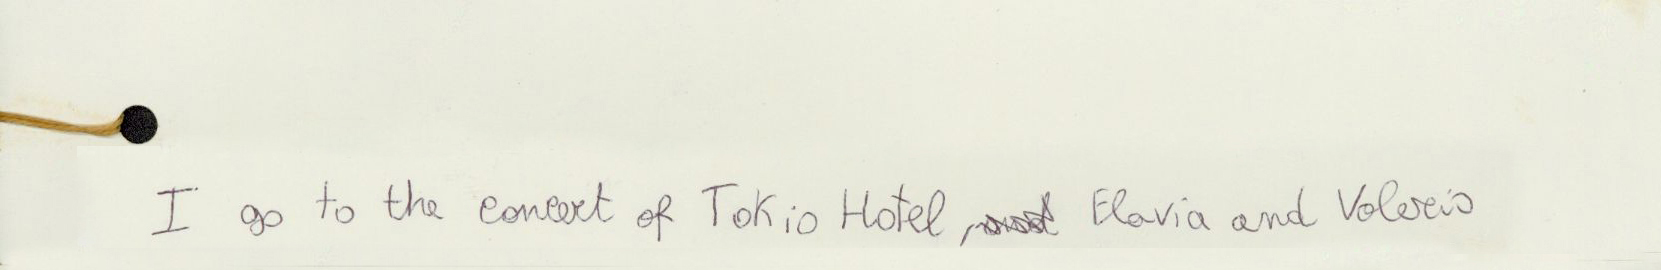 I go to the concert of Tokio Hotel, Flavia and Valeria